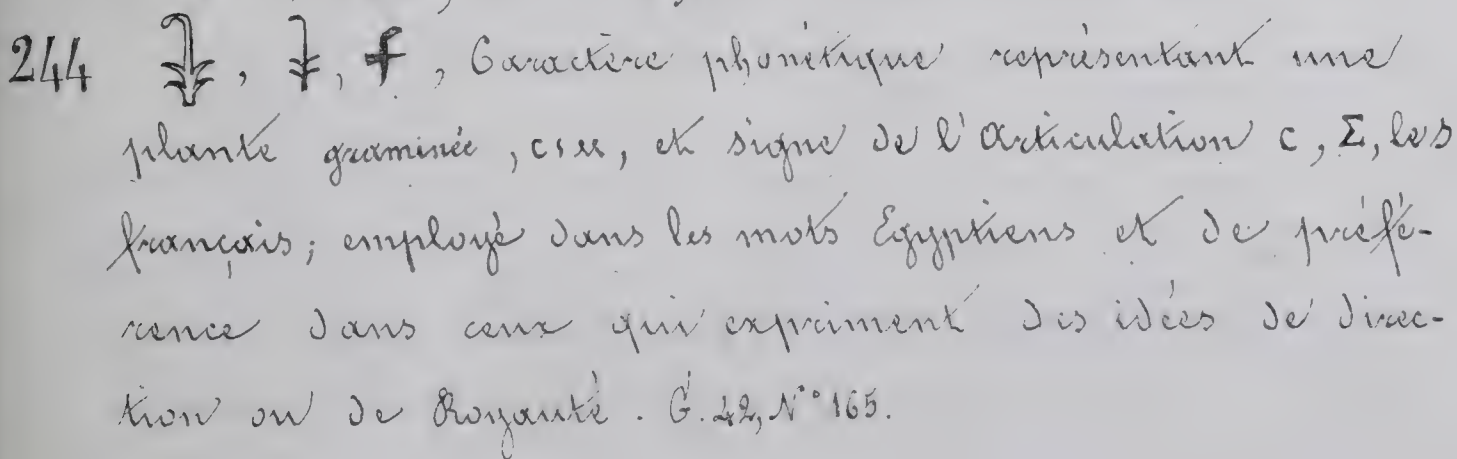 244 𓇓, 𓇓, f, Caractère phonétique représentant une
plante graminée, ⲥⲓⲙ, et signe de l'articulation ⲥ, Σ, les
français; employé dans les mots Egyptiens et de préfé-
rence dans ceux qui expriment des idées de direc-
tion ou de Royauté. G. 42, N° 165.